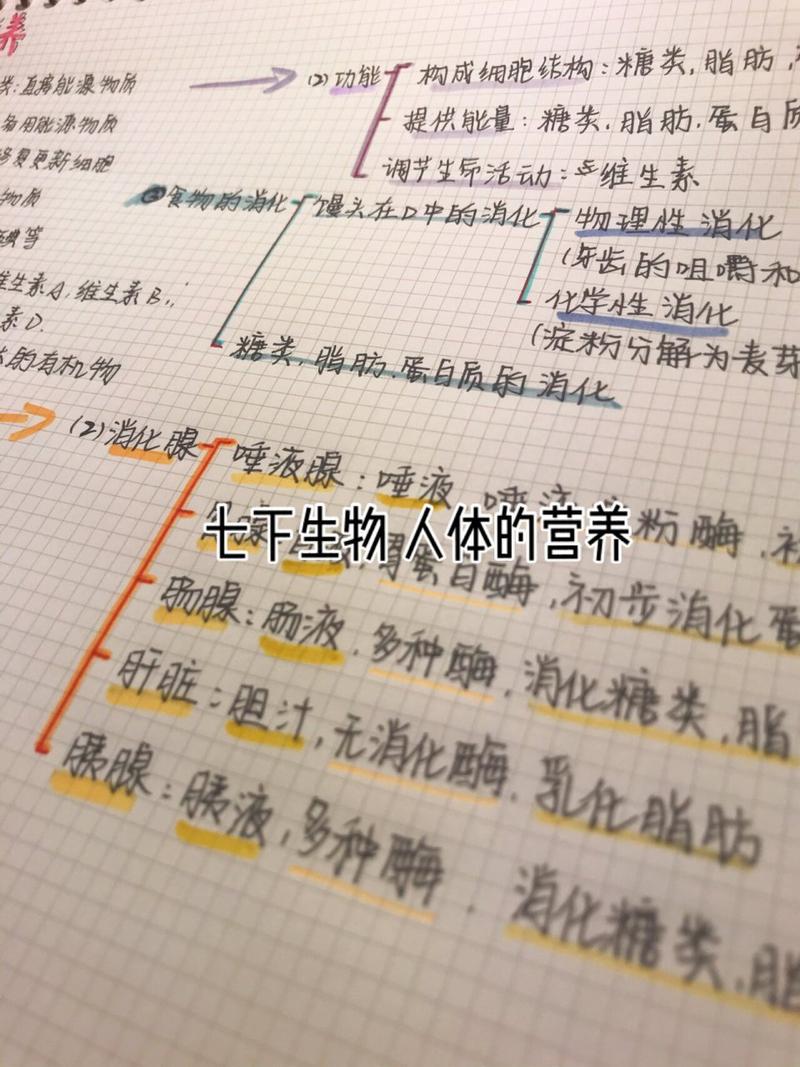 养
类:直接能源物质
备用能源物质
修复更新细胞
物质
碘等
维生素A,维生素B,
素D.
的有机物
(2)功能
构成细胞结构:糖类,脂肪,
提供能量:糖类.脂肪.蛋白质
调节生命活动:维生素
食物的消化
馒头在口中的消化
物理性消化
(牙齿的咀嚼和
化学性消化
(淀粉分解为麦芽
糖类,脂肪.蛋白质的消化
(2)消化腺
唾液腺:唾液 粉酶,初
七下生物 人体的营养
胃蛋白酶,初步消化蛋
肠腺:肠液.多种酶,消化糖类,脂
肝脏:胆汁,无消化酶.乳化脂肪
胰腺:胰液,多种酶.消化糖类,脂